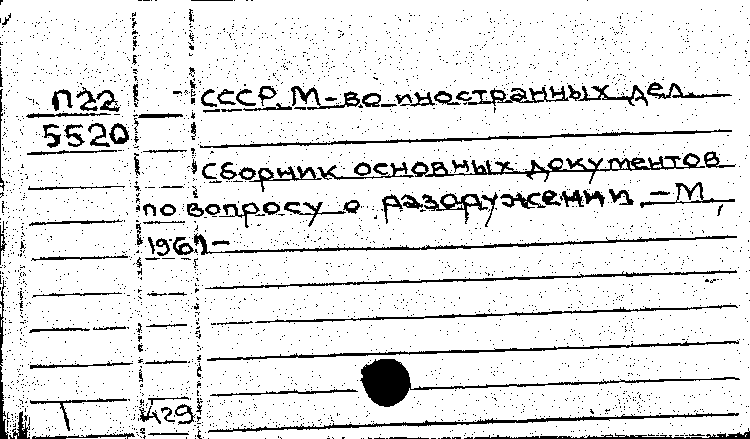 П22 СССР. М-во иностранных дел.
5520
Сборник основных документов
по вопросу о разоружении. – М.,
1961 –
429